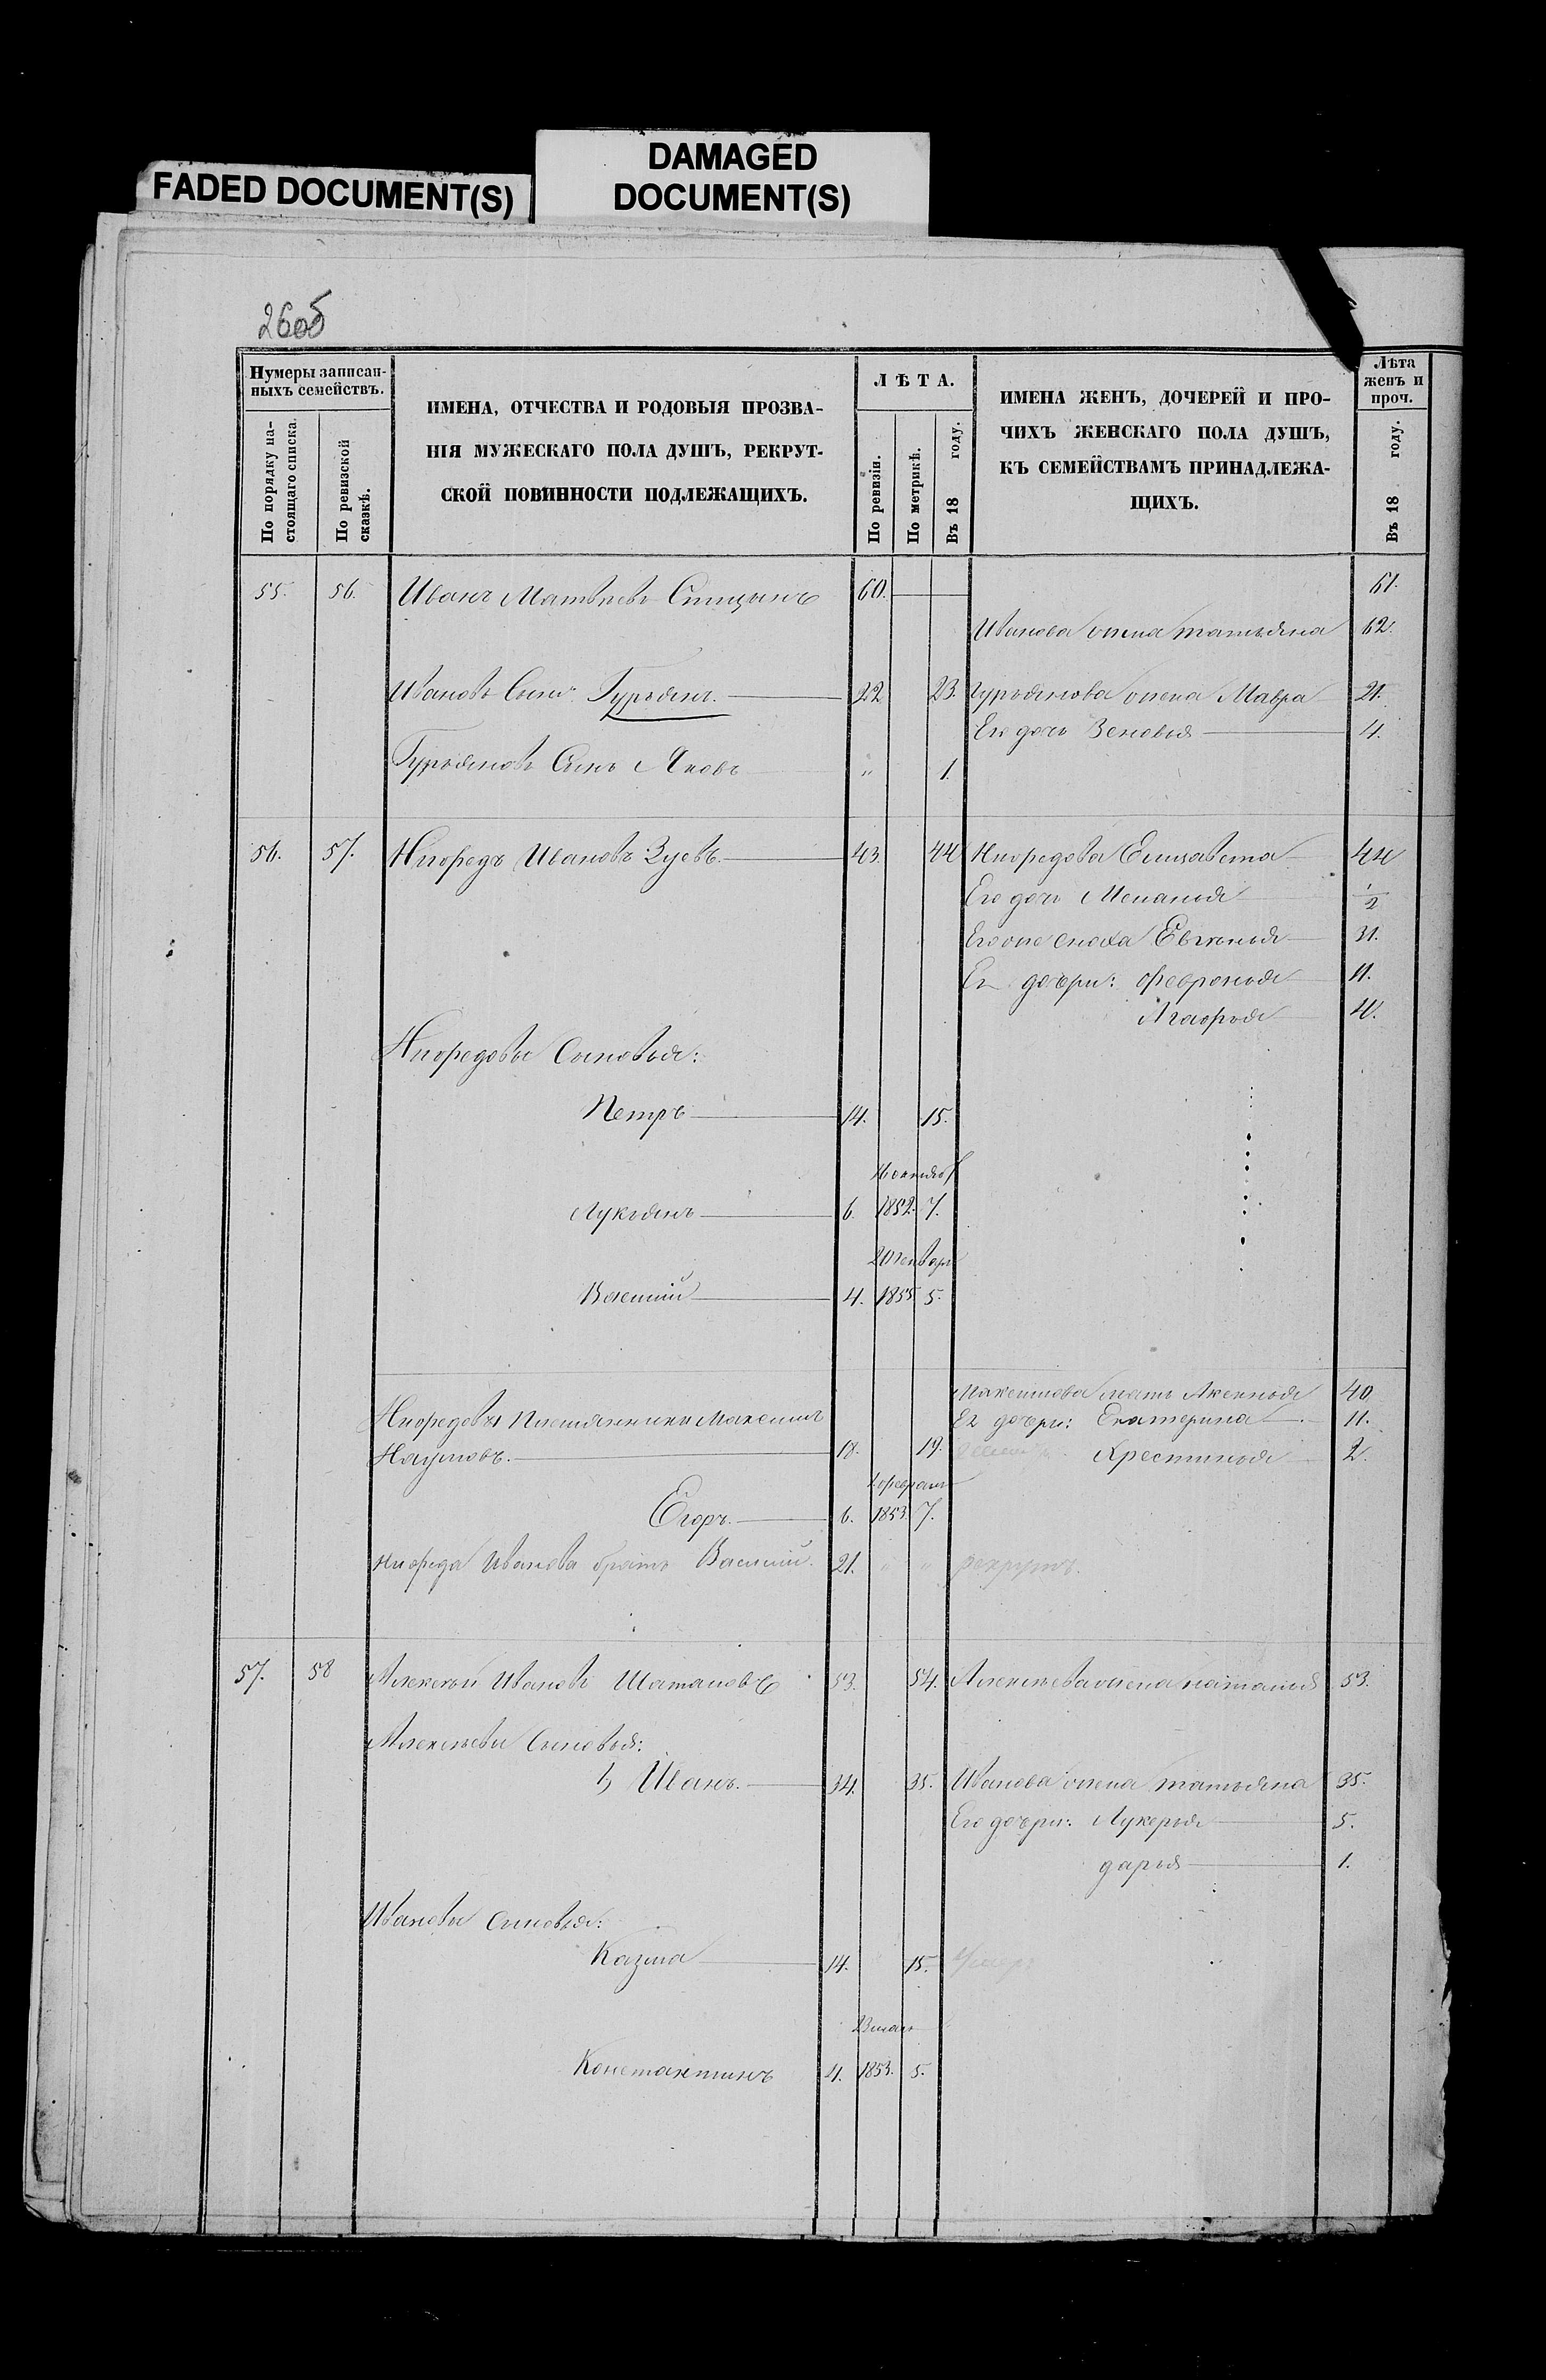 FADED DOCUMENT(S)
DAMAGED
DOCUMENT(S)
26об
Нумеры записан-
ныхъ семействъ.
По порядку на-
стоящаго списка.
По ревизской
сказкѣ.
ИМЕНА, ОТЧЕСТВА И РОДОВЫЯ ПРОЗВА-
НІЯ МУЖЕСКАГО ПОЛА ДУШЪ, РЕКРУТ-
СКОЙ ПОВИННОСТИ ПОДЛЕЖАЩИХЪ.
ЛѢТА.
По ревизіи.
По метрикѣ.
Въ 18 году.
ИМЕНА ЖЕНЪ, ДОЧЕРЕЙ И ПРО-
ЧИХЪ ЖЕНСКАГО ПОЛА ДУШЪ,
КЪ СЕМЕЙСТВАМЪ ПРИНАДЛЕЖА-
ЩИХЪ.
Лѣта
женъ и
проч.
Въ 18 году.
55. 56. Иванъ Матвѣевъ Спицынъ 60. 61.
Иванова жена татьяна 62.
Ивановъ Сынъ Гурьянъ. 22 23. Гурьянова жена Мавра 21.
Его дочь Зеновья 4.
Гурьяновъ Сынъ Яковъ " 1.
56. 57. Нифедъ Ивановъ Зуевъ. 43. 44 Нифедова Елизавета 44
Его дочь Меланья 1/2
Его же сноха Евгенья 31.
Ея дочери: Февронья 11.
Агафья 4.
Нифедовы Сыновья:
Петръ 14. 15.
Лукьянъ 6. 1852. 7.
Январ
Василий 4. 1855 5.
Максимова мать Аксинья 40.
Нифедовы Племянники Максимъ
Ея дочери: Екатерина 11.
Наумовъ. 18. 19. Крестинья 2.
февраля
Егоръ. 6. 1853. 7.
Нифеда Иванова братъ Василий. 21. " " рекрутъ.
57. 58 Алексѣй Ивановъ Шаталовъ 53. 54. Алексѣева жена наталья 53.
Алексѣевы Сыновья:
1, Иванъ. 34. 35. Иванова жена татьяна 35.
Его дочери: Лукерья 5.
дарья 1.
Ивановы сыновья:
Казма 14. 15. Умеръ
23 мая
Константинъ 4. 1853. 5.